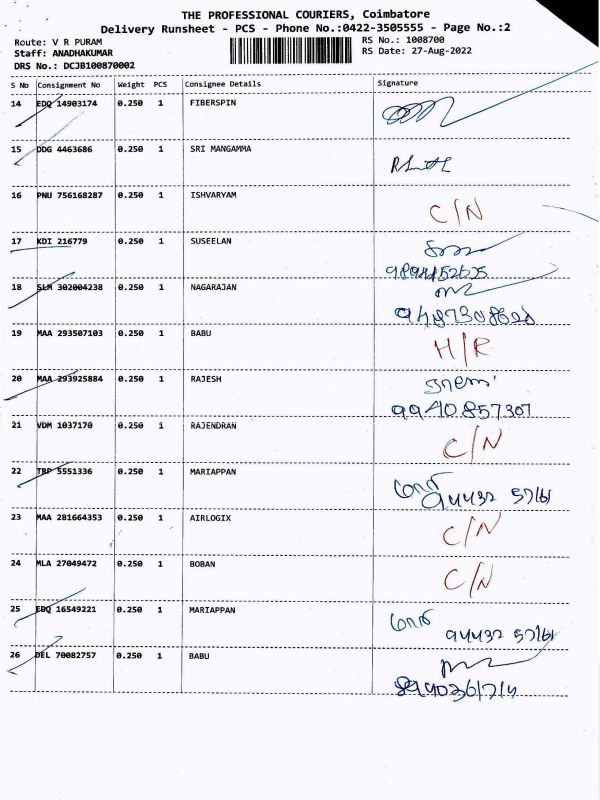 THE PROFESSIONAL COURIERS, Coimbatore
Delivery Runsheet - PCS - Phone No.:0422-3505555 - Page No.:2
Route: V R PURAM
RS No.: 1008700
Staff: ANADHAKUMAR
RS Date: 27-Aug-2022
DRS No.: DCJB100870002
S No Consignment No Weight PCS Consignee Details Signature
14 EDQ 14903174 0.250 1 FIBERSPIN
15 DDG 4463686 0.250 1 SRI MANGAMMA
16 PNU 756168287 0.250 1 ISHVARYAM C/N
17 KDI 216779 0.250 1 SUSEELAN
18 SLM 302004238 0.250 1 NAGARAJAN
19 MAA 293507103 0.250 1 BABU H/R
20 MAA 293925884 0.250 1 RAJESH
9940857307
21 VDM 1037170 0.250 1 RAJENDRAN C/N
22 TRP 5551336 0.250 1 MARIAPPAN
94432 57161
23 MAA 281664353 0.250 1 AIRLOGIX C/N
24 MLA 27049472 0.250 1 BOBAN C/N
25 EDQ 16549221 0.250 1 MARIAPPAN
94432 57161
26 DEL 70082757 0.250 1 BABU